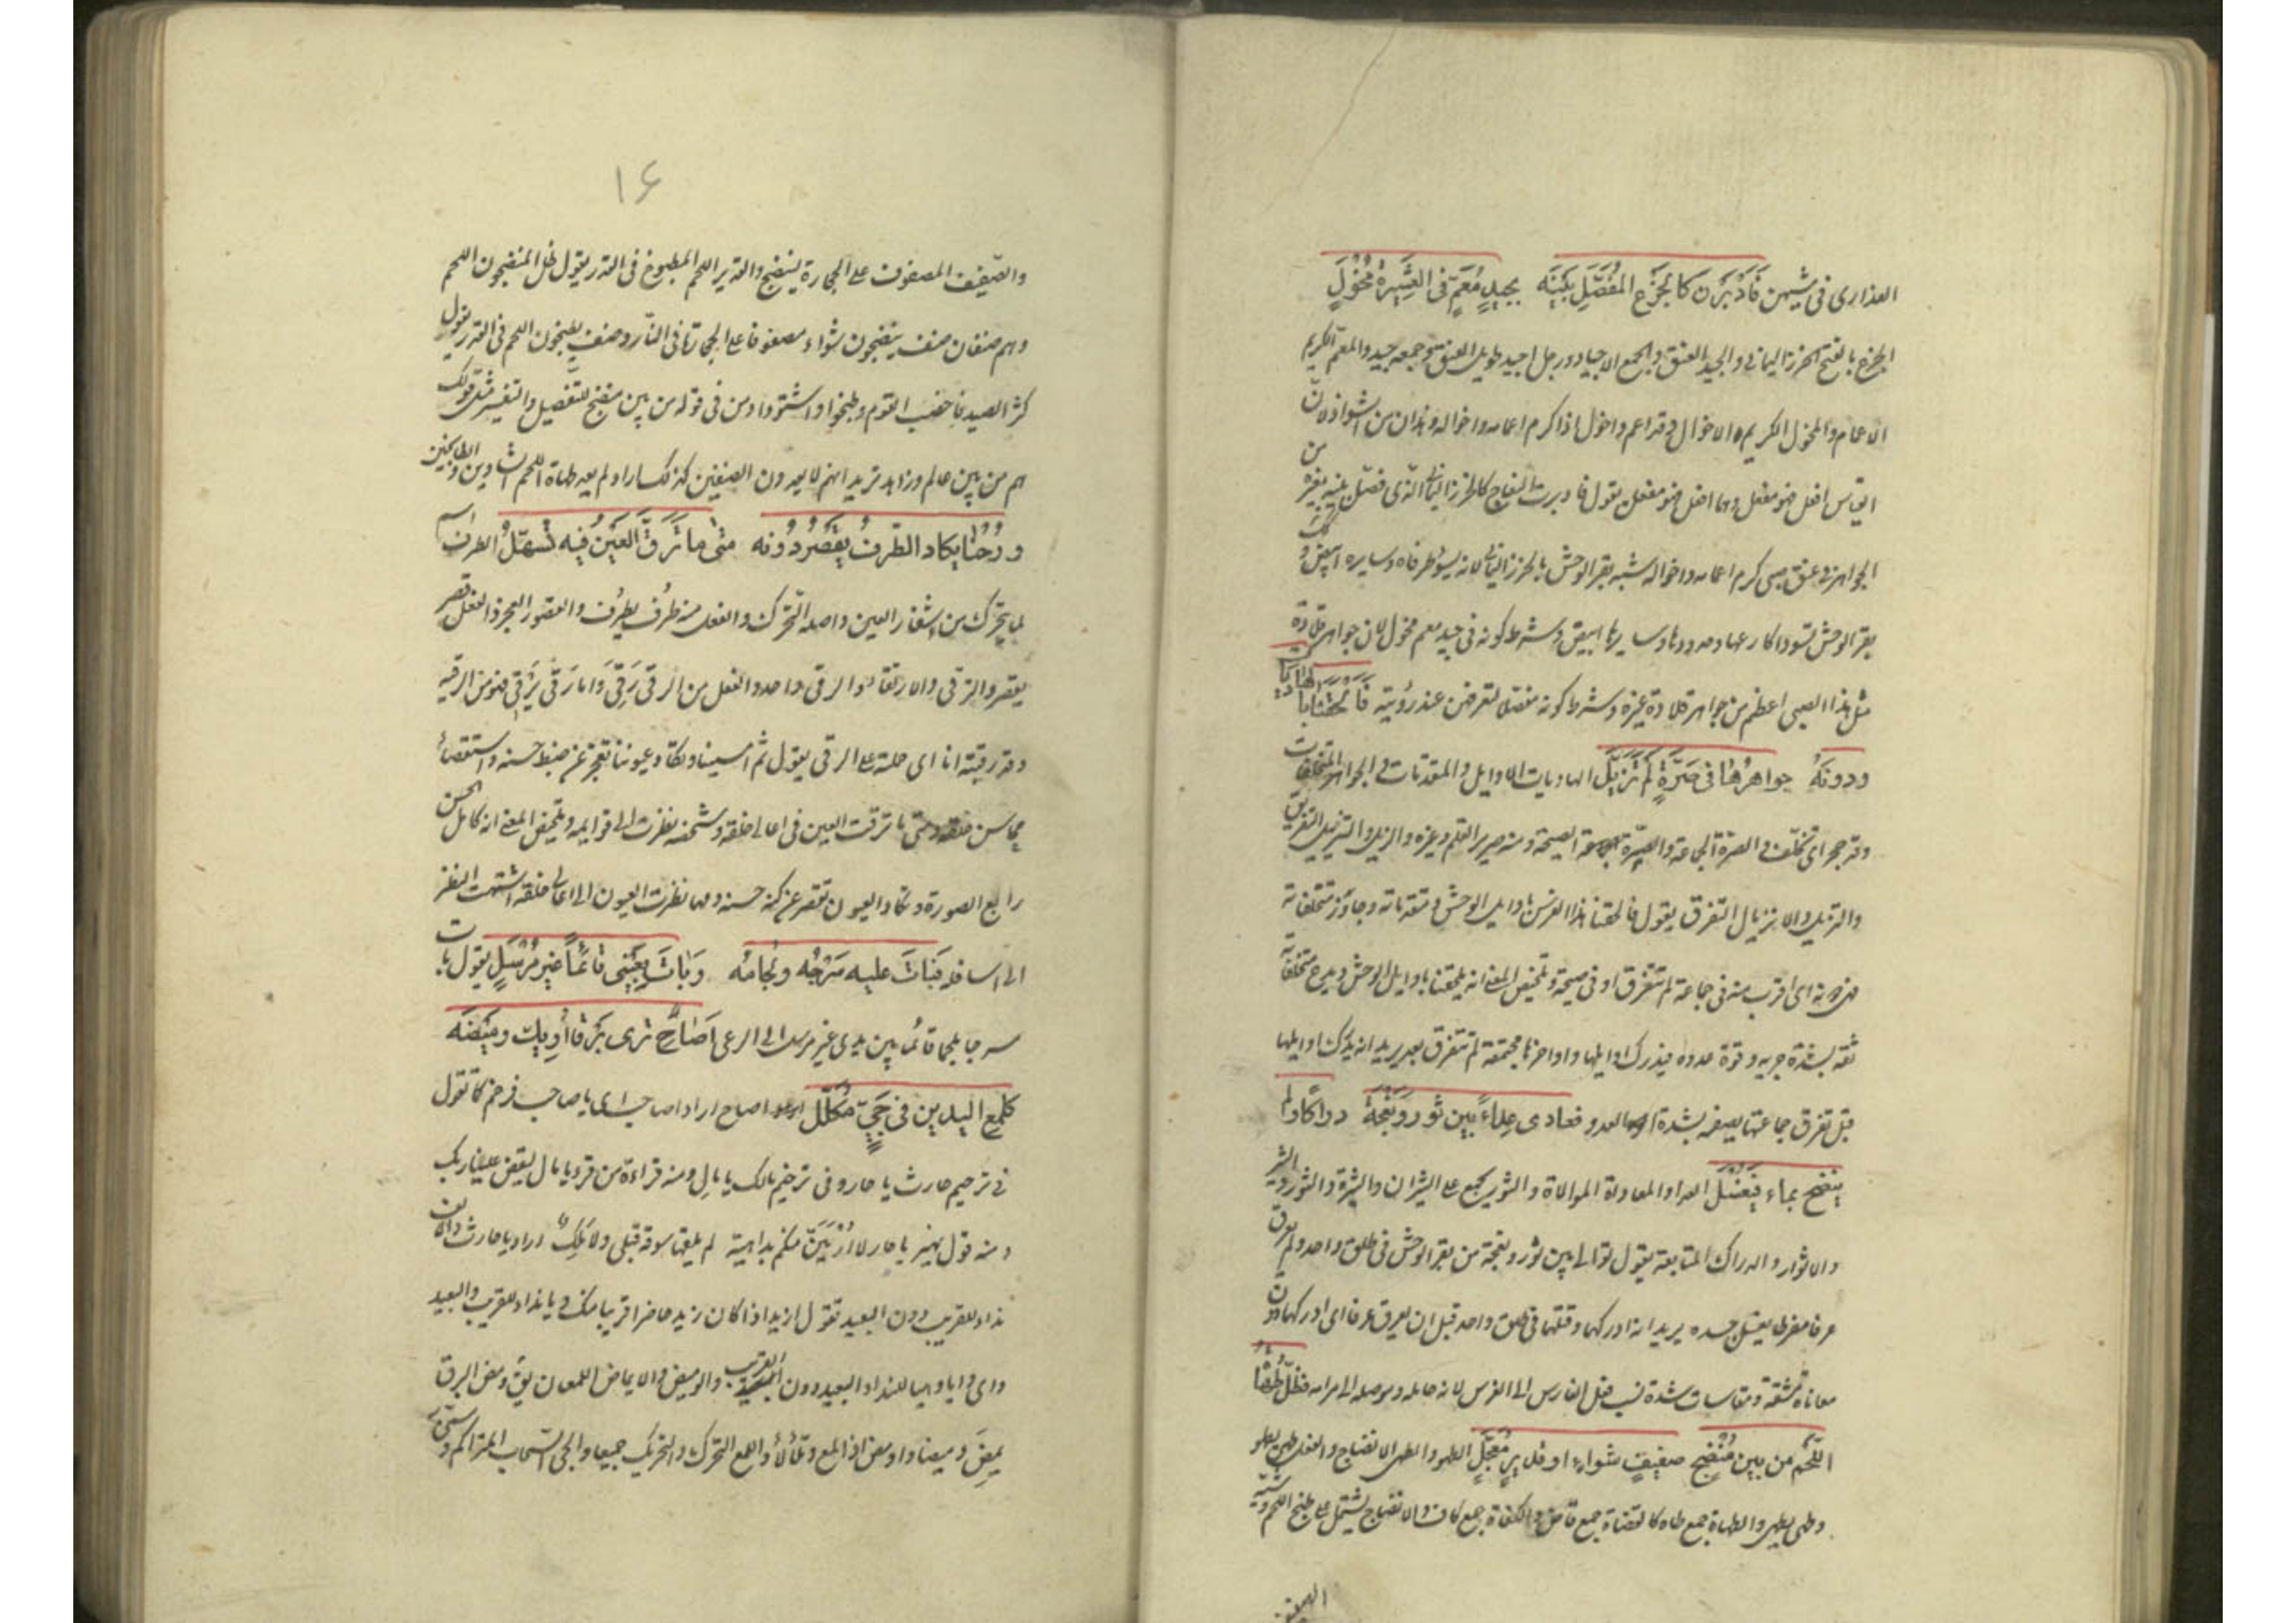 العذارى فى مشيهن فَاَدْبَرْنَ كالجَزْعِ المُفَصَّلِ بَيْنَه بجيدِ مُعَمٍّ فى العَشِيرَةِ مُخْوَلِ
الجزع بالفتح الخرز اليمانى والجيد العنق والجمع الاجياد ورجل اجيد طويل العنق وجمعه جيد والمعم الكريم
الاعمام والمخول الكريم الاخوال وقد اعم واخول اذا كرم اعمامه واخواله وهذان من الشواذ لان
القياس من افعل فهو مفعل وهما افعل فهو مفعل يقول فادبرت النعاج كالخرز اليمانى الذى فصل بينه بغيره من
الجواهر فى عنق صبى كرم اعمامه واخواله شبه بقر الوحش بالخرز اليمانى لانه يسود طرفاه وسايره ابيض وكذلك
بقر الوحش تسود اكارعها وخدودها وسايرها ابيض وشرط كونه فى جيد معم مخول لان جواهر قلادة
مثل هذا الصبى اعظم من جواهر قلادة غيره وشرط كونه مفصلا لتفرقهن عند رؤيته فَاَلْحَقَنَا بالهَادِيَاتِ
ودونَهُ جواهرُها فى صَرَّةٍ لَمْ تَزَيَّلِ الهاديات الاوايل والمتقدمات والجواهر المتخلفات
وقد جحر اى تخلف والصرة الجماعة والصرة الصيحة ومنه صرير القلم وغيره والزيل والتزييل التفريق
والتزيل والانزيال التفرق يقول فالحقنا هذا الفرس باوايل الوحش ومتقدماته وجاوز متخلفاته
فهى دونه اى اقرب منه فى جماعة لم تتفرق او فى صيحة وتلخيص المعنى انه يلحقنا باوايل الوحش ويدع متخلفاته
ثقة بشدة جريه وقوة عدوه فيدرك اوايلها واواخرها مجتمعة لم تتفرق بعد يريد انه يدرك اوايلها
قبل تفرق جماعتها يصفه بشدة العدو فعادى عِداءً بين ثَوْرٍ ونَعْجَةٍ دراكًا ولم
يَنضَحْ بماء فيُغْسَلِ العداء والمعاداة الموالاة والثور يجمع على الثيران والثيرة والثورة
والاثوار والدراك المتابعة يقول توالى بين ثور ونعجة من بقر الوحش فى طلق واحد ولم يعرق
عرقا مفرطا يغسل جسده يريد انه ادركهما وقتلهما فى طلق واحد قبل ان يعرق عرقا اى ادركهما دون
معاناة مشقة ومقاسات شدة نسب فعل الفارس الى الفرس لانه حامله وموصله الى مرامه فظلّ طُهَاةُ
اللّحْمِ من بين مُنْضِجٍ صفيفَ شواءٍ او قديرٍ مُعَجَّلِ الطهو والطهى الانضاج والفعل طهى يطهو
وطهى يطهى والطهاة جمع طاه كالقضاة جمع قاض والكفاة جمع كاف والانضاج يشتمل على طبخ اللحم وشيّه
۱۶
والصفيف المصفوف على الحجارة لينضج والقدير اللحم المطبوخ فى القدر يقول ظل المنضجون اللحم
وهم صنفان صنف ينضجون شواء مصفوفا على الحجارة فى النار وصنف يطبخون اللحم فى القدر يقول
كثر الصيد فاخصب القوم وطبخوا واشتووا ومن فى قوله من بين منضج للتفصيل والتفسير مثل قولك
هم من بين عالم وزاهد تريد انهم لا يعدون الصنفين كذلك اراد لم يعد طهاة اللحم الشاوين والطابخين
ورُحْنا يكاد الطَرفُ يَقْصُرُ دُونَه متى ما تَرَقَّ العَيْنُ فيه تَسَهَّلِ الطرف اسم
لما يتحرك من اشفار العين واصله التحرك والفعل منه طرف يطرف والقصور العجز والفعل قصر
يقصر والترقى والارتقاء والرقى واحد والفعل من الرقى رَقِىَ يَرْقَى واما رقى يرقى فهو من الرقية
وقد رقيته انا اى حملته على الرقى يقول ثم امسينا وتكاد عيوننا تعجز عن ضبط حسنه واستقصاء
محاسن خلقه ومتى ما ترقت العين فى اعالى خلقه وشخصه نظرت الى قوايمه وتلخيص المعنى انه كامل الحسن
رايع الصورة وتكاد العيون تقصر عن كنه حسنه ومهما نظرت العيون الى اعالى خلقه اشتهت النظر
الى اسافله فَبَاتَ عليه سَرْجُه ولِجامُه وَبَاتَ بِعَيْنِى قائِمًا غيرَ مُرْسَلِ يقول بات
مسرجا ملجما قائما بين يدى غير مرسل الى الرعى اَصَاحِ ترى بَرْقًا اُرِيكَ وميضَه
كلَمعِ اليدين فى حَبِىٍّ مُكَلَّلِ اصاح اراد اصاحب اى يا صاحب فرخم كما تقول
فى ترخيم حارث يا حار وفى ترخيم مالك يا مال ومنه قراءة من قرء يا مال ليقض علينا ربك
ومنه قول زهير يا حار لا اُرْمَيَنْ منكم بداهية لم يلقها سوقة قبلى ولا مَلِكُ اراد يا حارث والالف
نداء للقريب دون البعيد تقول ازيد اذا كان زيد حاضرا قريبا منك ويا نداء للقريب والبعيد
واى وايا وهيا للنداء البعيد دون القريب والوميض والايماض اللمعان يق ومض البرق
يمض وميضا واومض اذا لمع وتلألأ واللمع التحرك والتحريك جميعا والحبى السحاب المتراكم